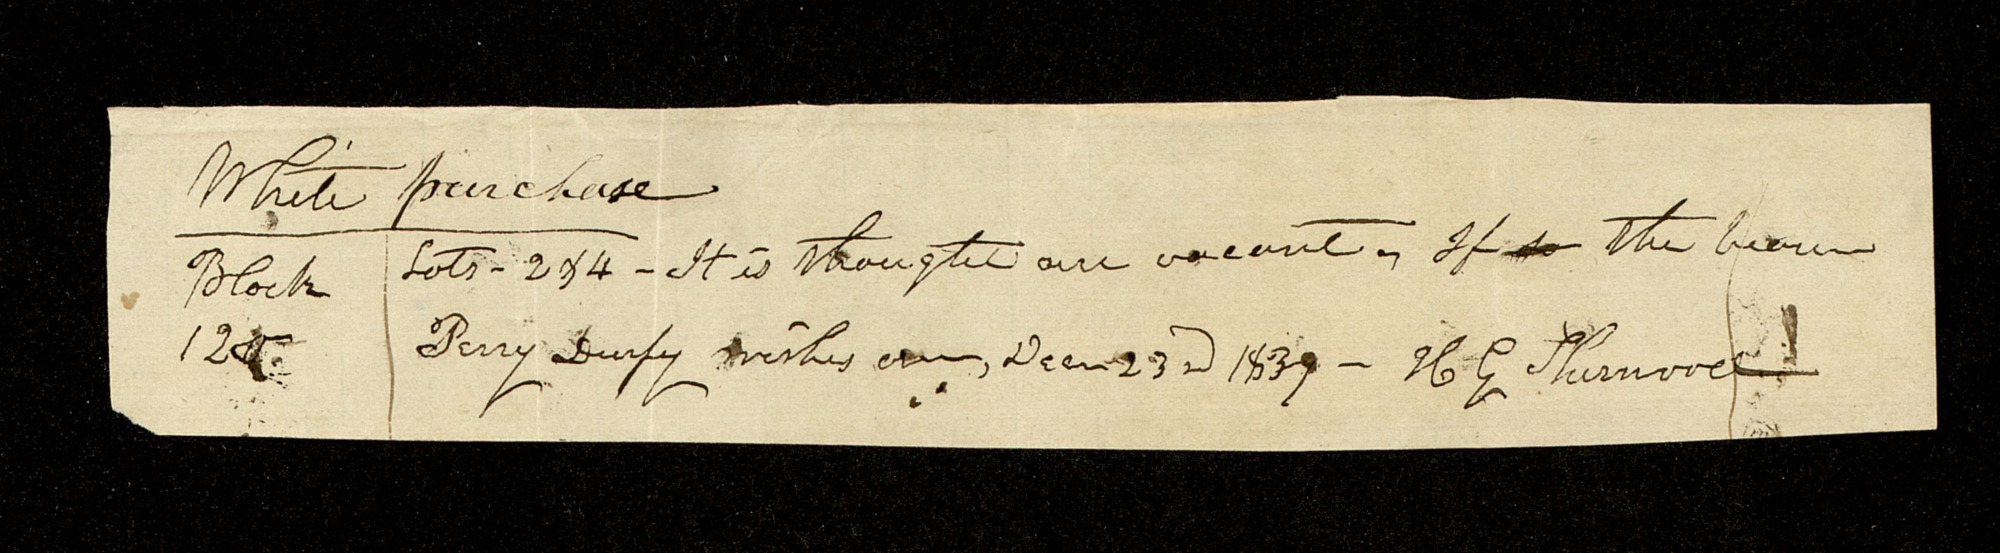 White purchase
Block Lots - 2 & 4 - It is thought are vacant, If so the bearer
12 Perry Durfy wishes one, Decem 23rd 1839 - H G Sherwood